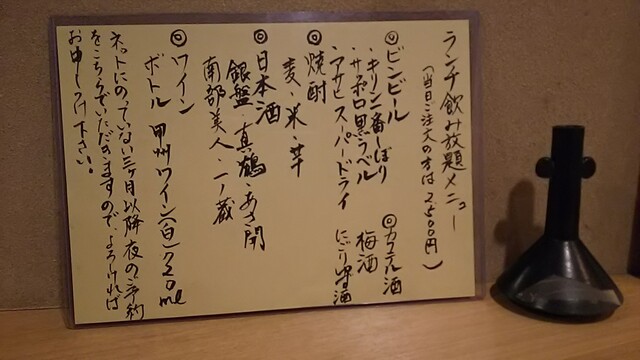 ランチ飲み放題メニュー
(当日ご注文の方は2,500円)
◎ビンビール
・キリン一番しぼり
・サッポロ黒ラベル
・アサヒスーパードライ
◎カクテル酒
梅酒
にごり梅酒
◎焼酎
麦・米・芋
◎日本酒
銀盤・真鶴・あさ開
南部美人・一ノ蔵
◎ワイン
ボトル 甲州ワイン(白)720ml
ネットにのっていない三ヶ月以降夜の予約
をこちらでいただきますので、よろしければ
お申しつけ下さい。